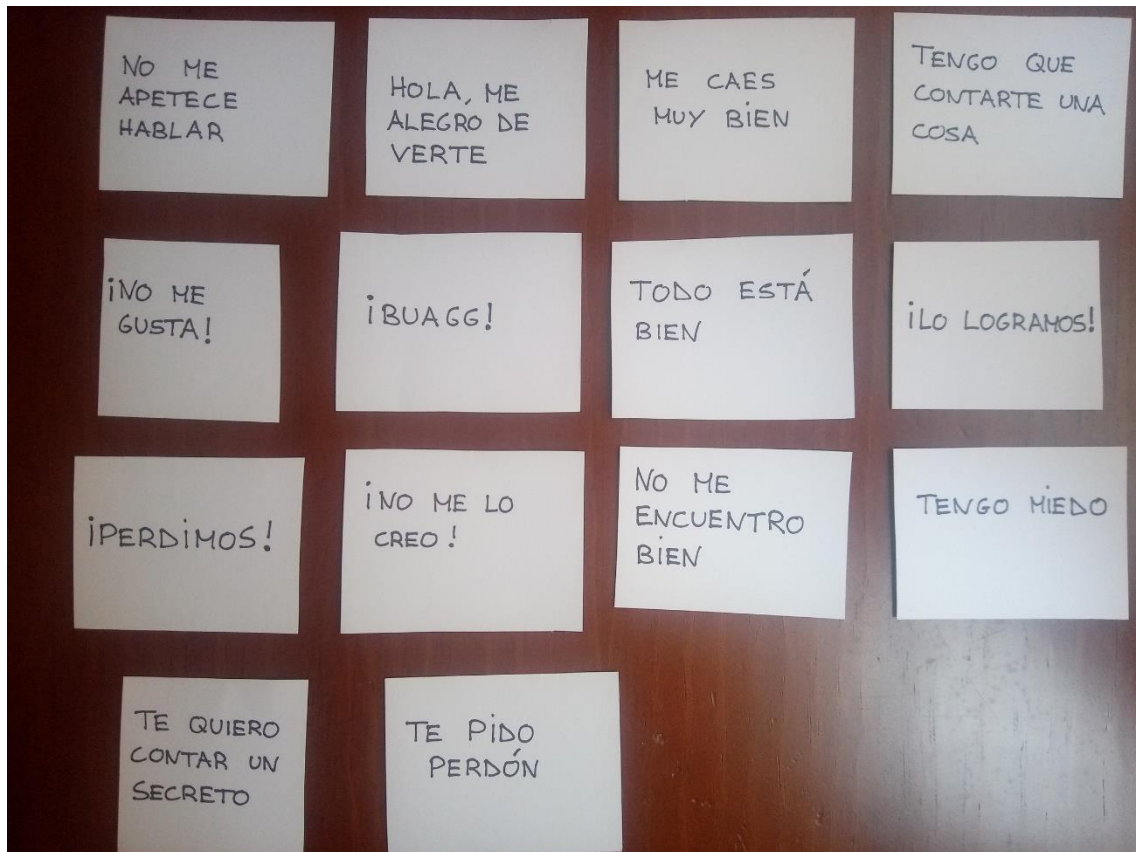 NO ME
APETECE
HABLAR
HOLA, ME
ALEGRO DE
VERTE
ME CAES
MUY BIEN
TENGO QUE
CONTARTE UNA
COSA
¡NO ME
GUSTA!
¡BUAGG!
TODO ESTÁ
BIEN
¡LO LOGRAMOS!
¡PERDIMOS!
¡NO ME LO
CREO!
NO ME
ENCUENTRO
BIEN
TENGO MIEDO
TE QUIERO
CONTAR UN
SECRETO
TE PIDO
PERDÓN